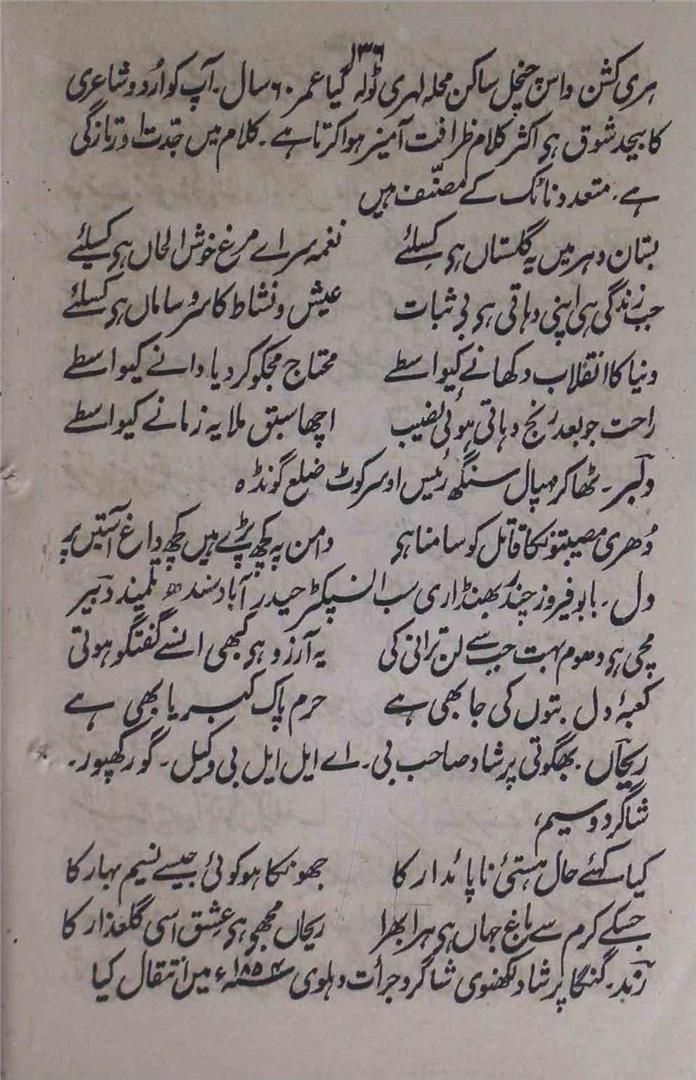 ۱۳۶
ہری کشن داس چنچل ساکن محلہ لہری ٹولہ گیا عمر ۶۰ سال۔ آپ کو اُردو شاعری
کا بیحد شوق ہی اکثر کلام ظرافت آمیز ہوا کرتا ہے۔ کلام میں جدّت اور تازگی
ہے۔ متعدد ناٹک کے مصنّف ہیں
بستان دہر میں یہ گلستاں ہی کسلئے نغمہ سراے مرغ خوش الحاں ہی کسلئے
جب زندگی ہی اپنی دہاتی ہی بی ثبات عیش و نشاط کا سر و ساماں ہی کسلئے
دنیا کا انقلاب دکھانے کیواسطے محتاج مجکو کر دیا دانے کیواسطے
راحت جو بعد رنج دہاتی ہوئی نصیب اچھا سبق ملا یہ زمانے کیواسطے
دلبر۔ ٹھاکر مہپال سنگھ رئیس اوسرکوٹ ضلع گونڈہ
دُھری مصیبتونکا قاتل کو سامنا ہی دامن پہ کچھ پڑے ہیں کچھ داغ آستیں پر
دل۔ بابو فیروز چند بھنڈاری سب انسپکٹر حیدرآباد سندھ تلمیذ دبیر
مچی ہی دھوم بہت جب سے لن ترانی کی یہ آرزو ہی کبھی انسے گفتگو ہوتی
کعبۂ دل بتوں کی جا بھی ہے حرم پاک کبریا بھی ہے
ریحاں۔ بھگوتی پرشاد صاحب بی۔ اے ایل ایل بی وکیل۔ گورکھپور۔
شاگرد وسیم،
کیا کہئے حال ہستئ ناپائدار کا جھونکا ہو کوئی جیسے نسیم بہار کا
جسکے کرم سے باغ جہاں ہی ہرا بھرا ریحاں مجھی ہی عشق اسی گلعذار کا
زند۔ گنگا پرشاد لکھنوی شاگرد جرأت دہلوی ۱۸۵۴ء میں انتقال کیا